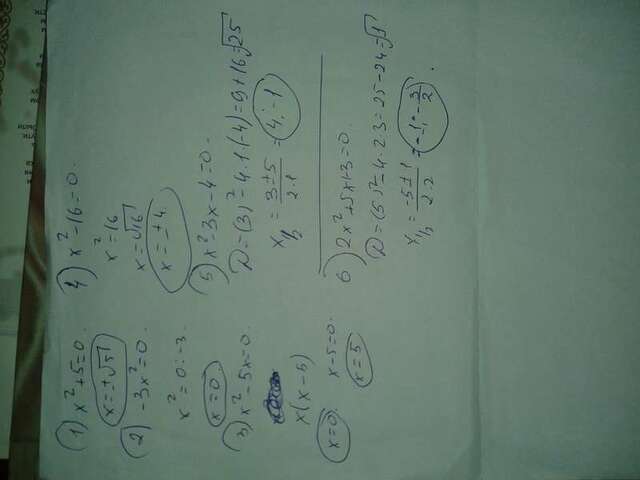 1) x²+5=0.
x=±√5
2) -3x²=0.
x²=0:-3.
x=0
3) x²-5x=0.
x(x-5)
x=0 x-5=0.
x=5
4) x²-16=0.
x²=16
x=√16
x=±4
5) x²-3x-4=0.
D=(3)²-4·1·(-4)=9+16=√25
x½=3±5/2·1=4;-1
6) 2x²+5x+3=0.
D=(5)²-4·2·3=25-24=√1
x½=-5±1/2·2=-1;-3/2.